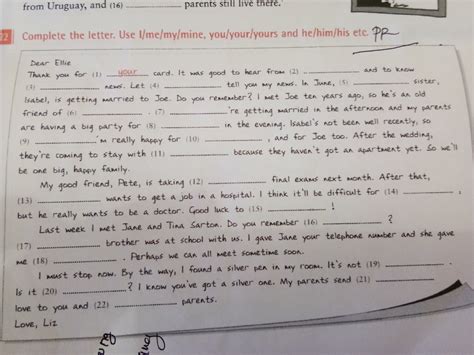 from Uruguay, and (16) ............ parents still live there.
2 Complete the letter. Use I/me/my/mine, you/your/yours and he/him/his etc. PR
Dear Ellie
Thank you for (1) your card. It was good to hear from (2) ............ and to know
(3) ............ news. Let (4) ............ tell you my news. In June, (5) ............ sister,
Isabel, is getting married to Joe. Do you remember? I met Joe ten years ago, so he's an old
friend of (6) ............ . (7) ............ 're getting married in the afternoon and my parents
are having a big party for (8) ............ in the evening. Isabel's not been well recently, so
(9) ............ 'm really happy for (10) ............ , and for Joe too. After the wedding,
they're coming to stay with (11) ............ because they haven't got an apartment yet. So we'll
be one big, happy family.
My good friend, Pete, is taking (12) ............ final exams next month. After that,
(13) ............ wants to get a job in a hospital. I think it'll be difficult for (14) ............ ,
but he really wants to be a doctor. Good luck to (15) ............ !
Last week I met Jane and Tina Sarton. Do you remember (16) ............ ?
(17) ............ brother was at school with us. I gave Jane your telephone number and she gave
me (18) ............ . Perhaps we can all meet sometime soon.
I must stop now. By the way, I found a silver pen in my room. It's not (19) ............ .
Is it (20) ............ ? I know you've got a silver one. My parents send (21) ............
love to you and (22) ............ parents.
Love, Liz